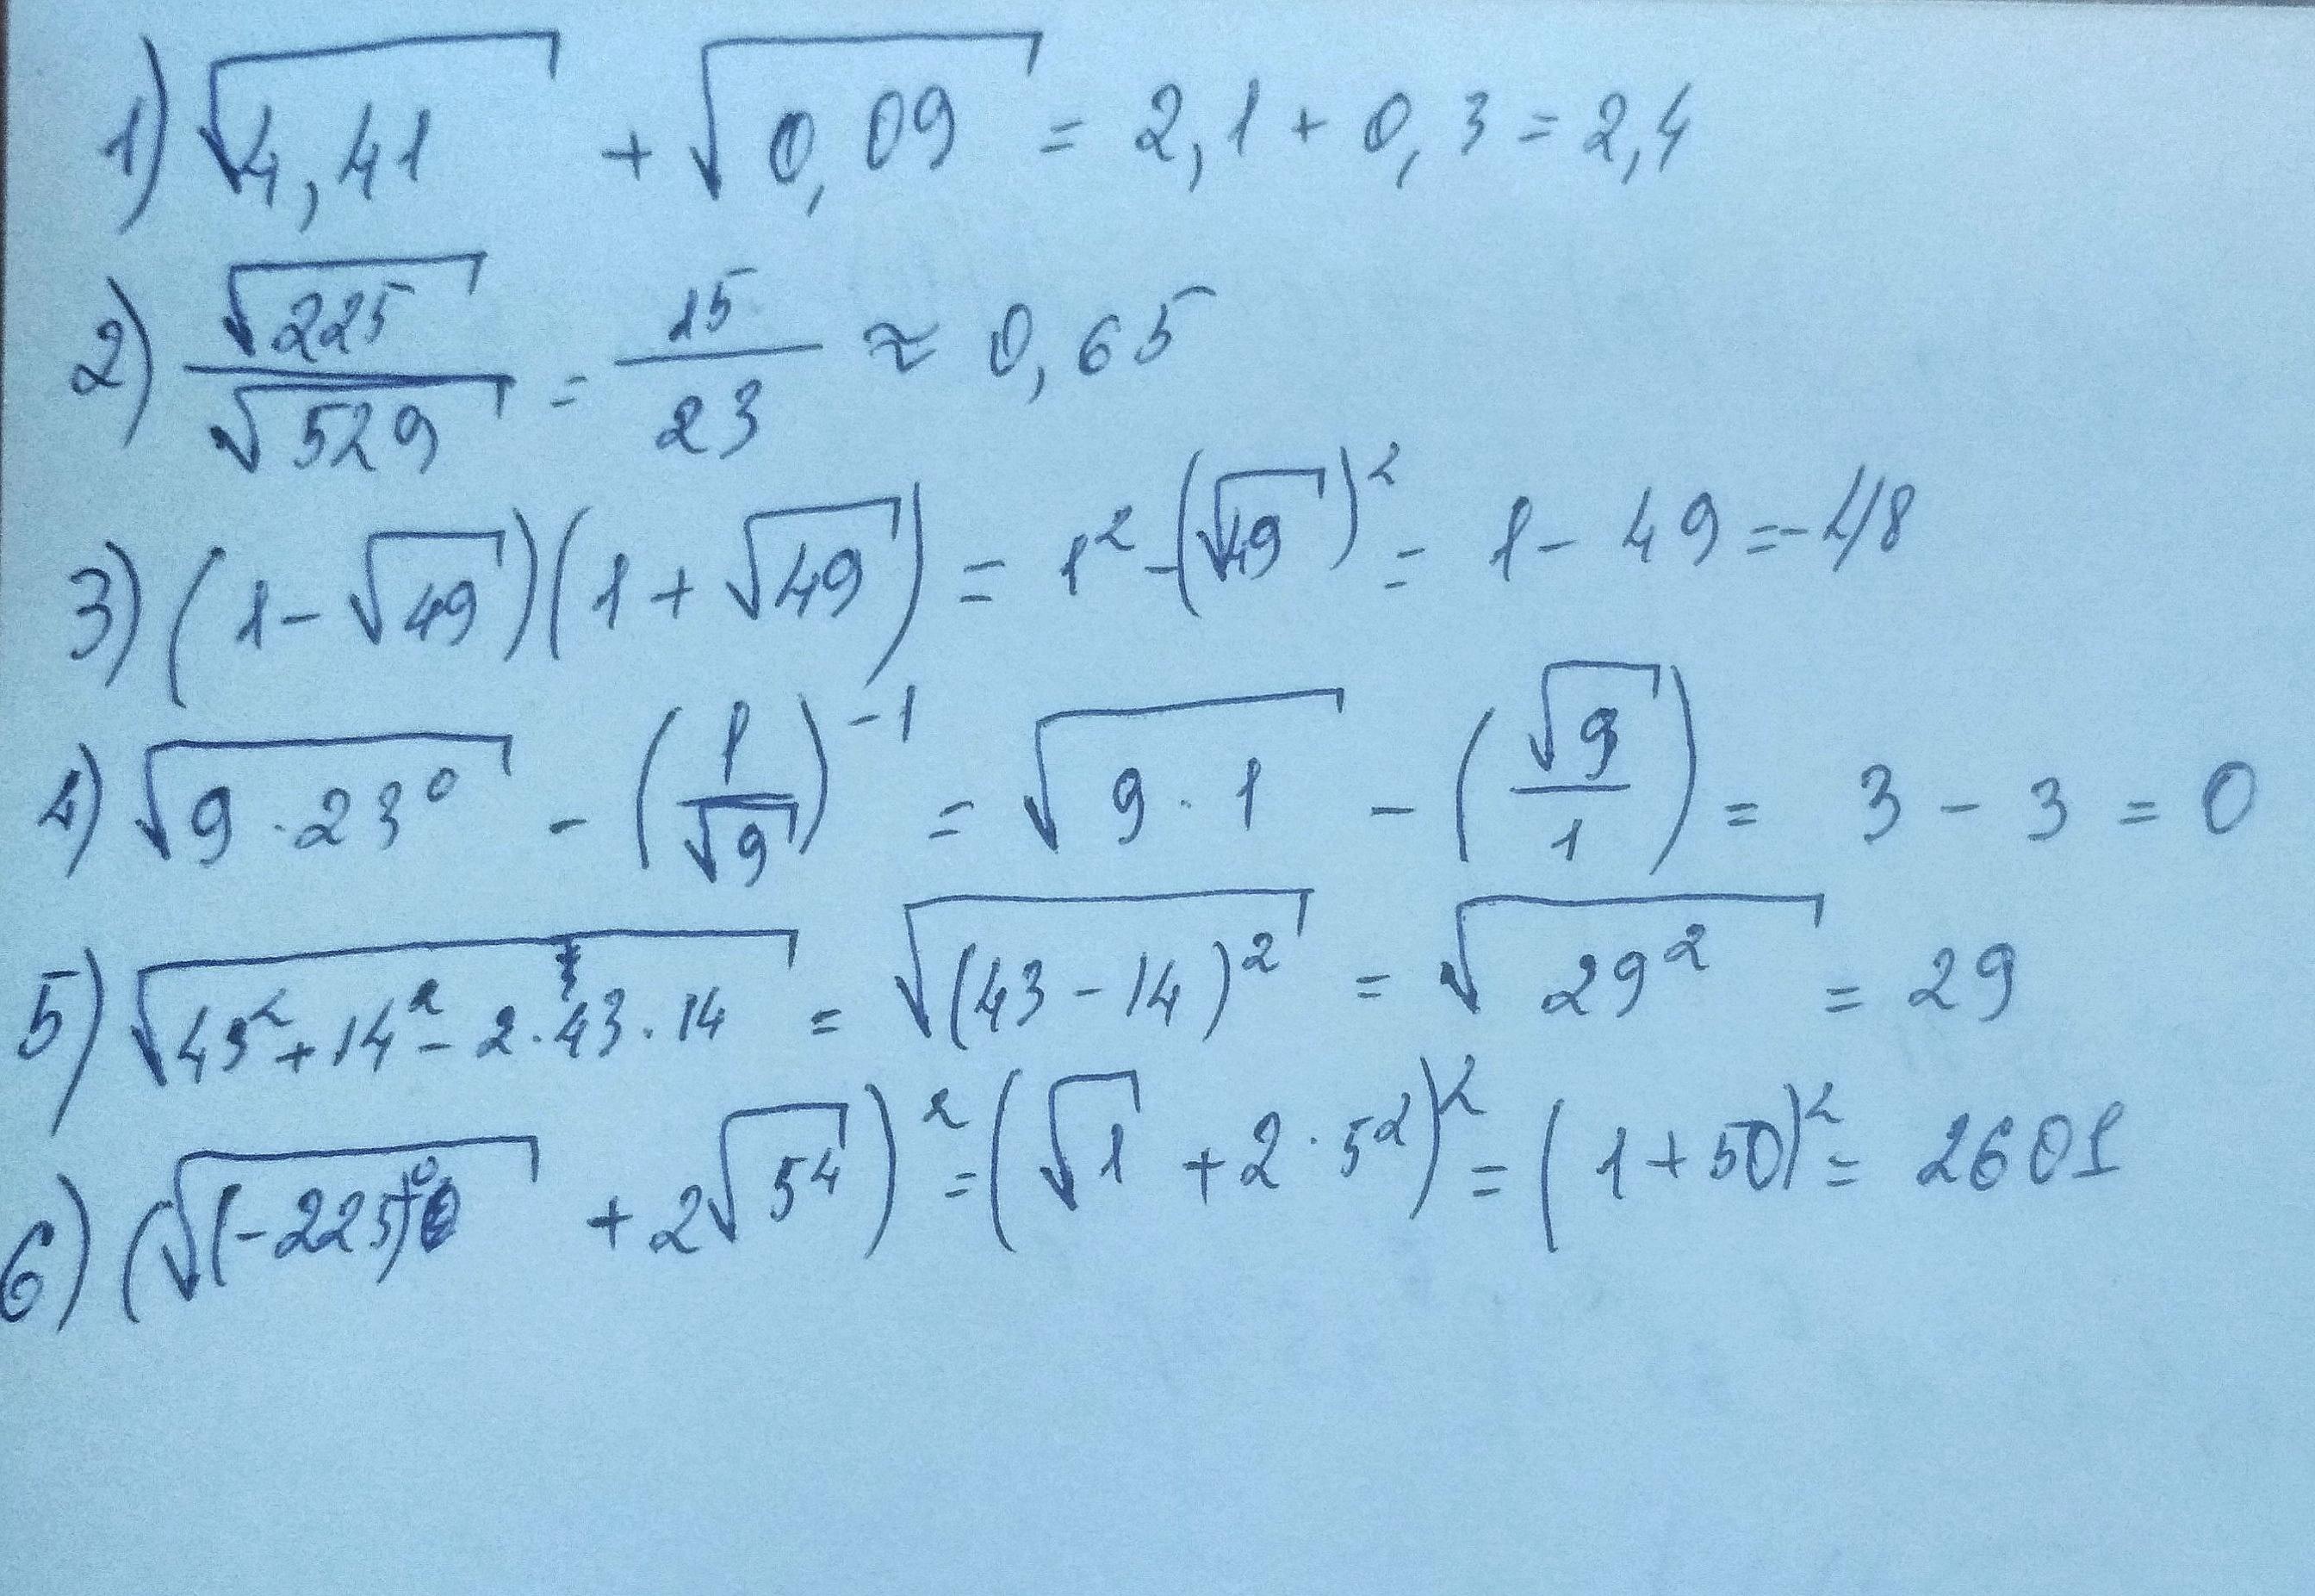 1) √4,41 + √0,09 = 2,1 + 0,3 = 2,4
2) √225/√529 = 15/23 ≈ 0,65
3) (1-√49)(1+√49) = 1² - (√49)² = 1 - 49 = -48
4) √(9·23⁰) - (1/√9)⁻¹ = √(9·1) - (√9/1) = 3 - 3 = 0
5) √(43² + 14² - 2·43·14) = √((43-14)²) = √(29²) = 29
6) (√((-225)⁰) + 2√(5⁴))² = (√1 + 2·5²)² = (1+50)² = 2601